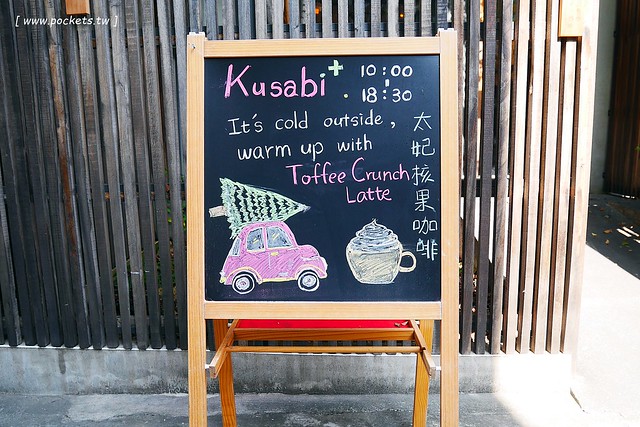 [ www.pockets.tw ]
Kusabi+
10:00
18:30
It's cold outside,
warm up with
Toffee Crunch
Latte
太妃核果咖啡